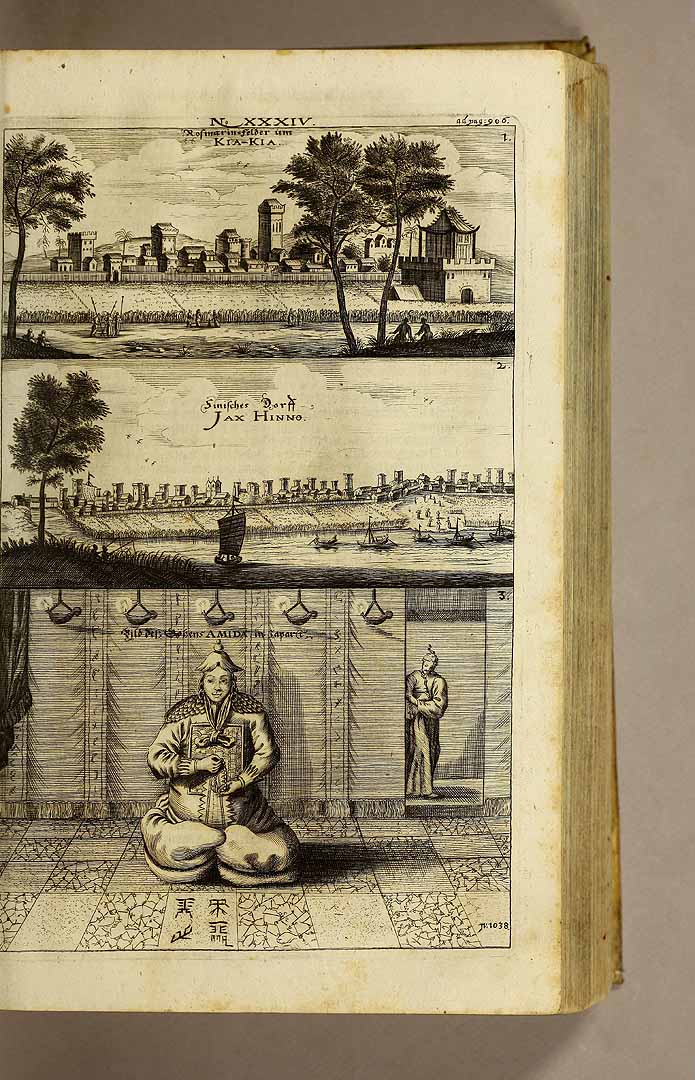 No XXXIV.
ad pag: 906.
Rosmarin-felder um
KIA-KIA.
1.
2.
Sinisches Dorff
JAX HINNO.
3.
Bild deß Götzens AMIDA in Iapan
p. 1038